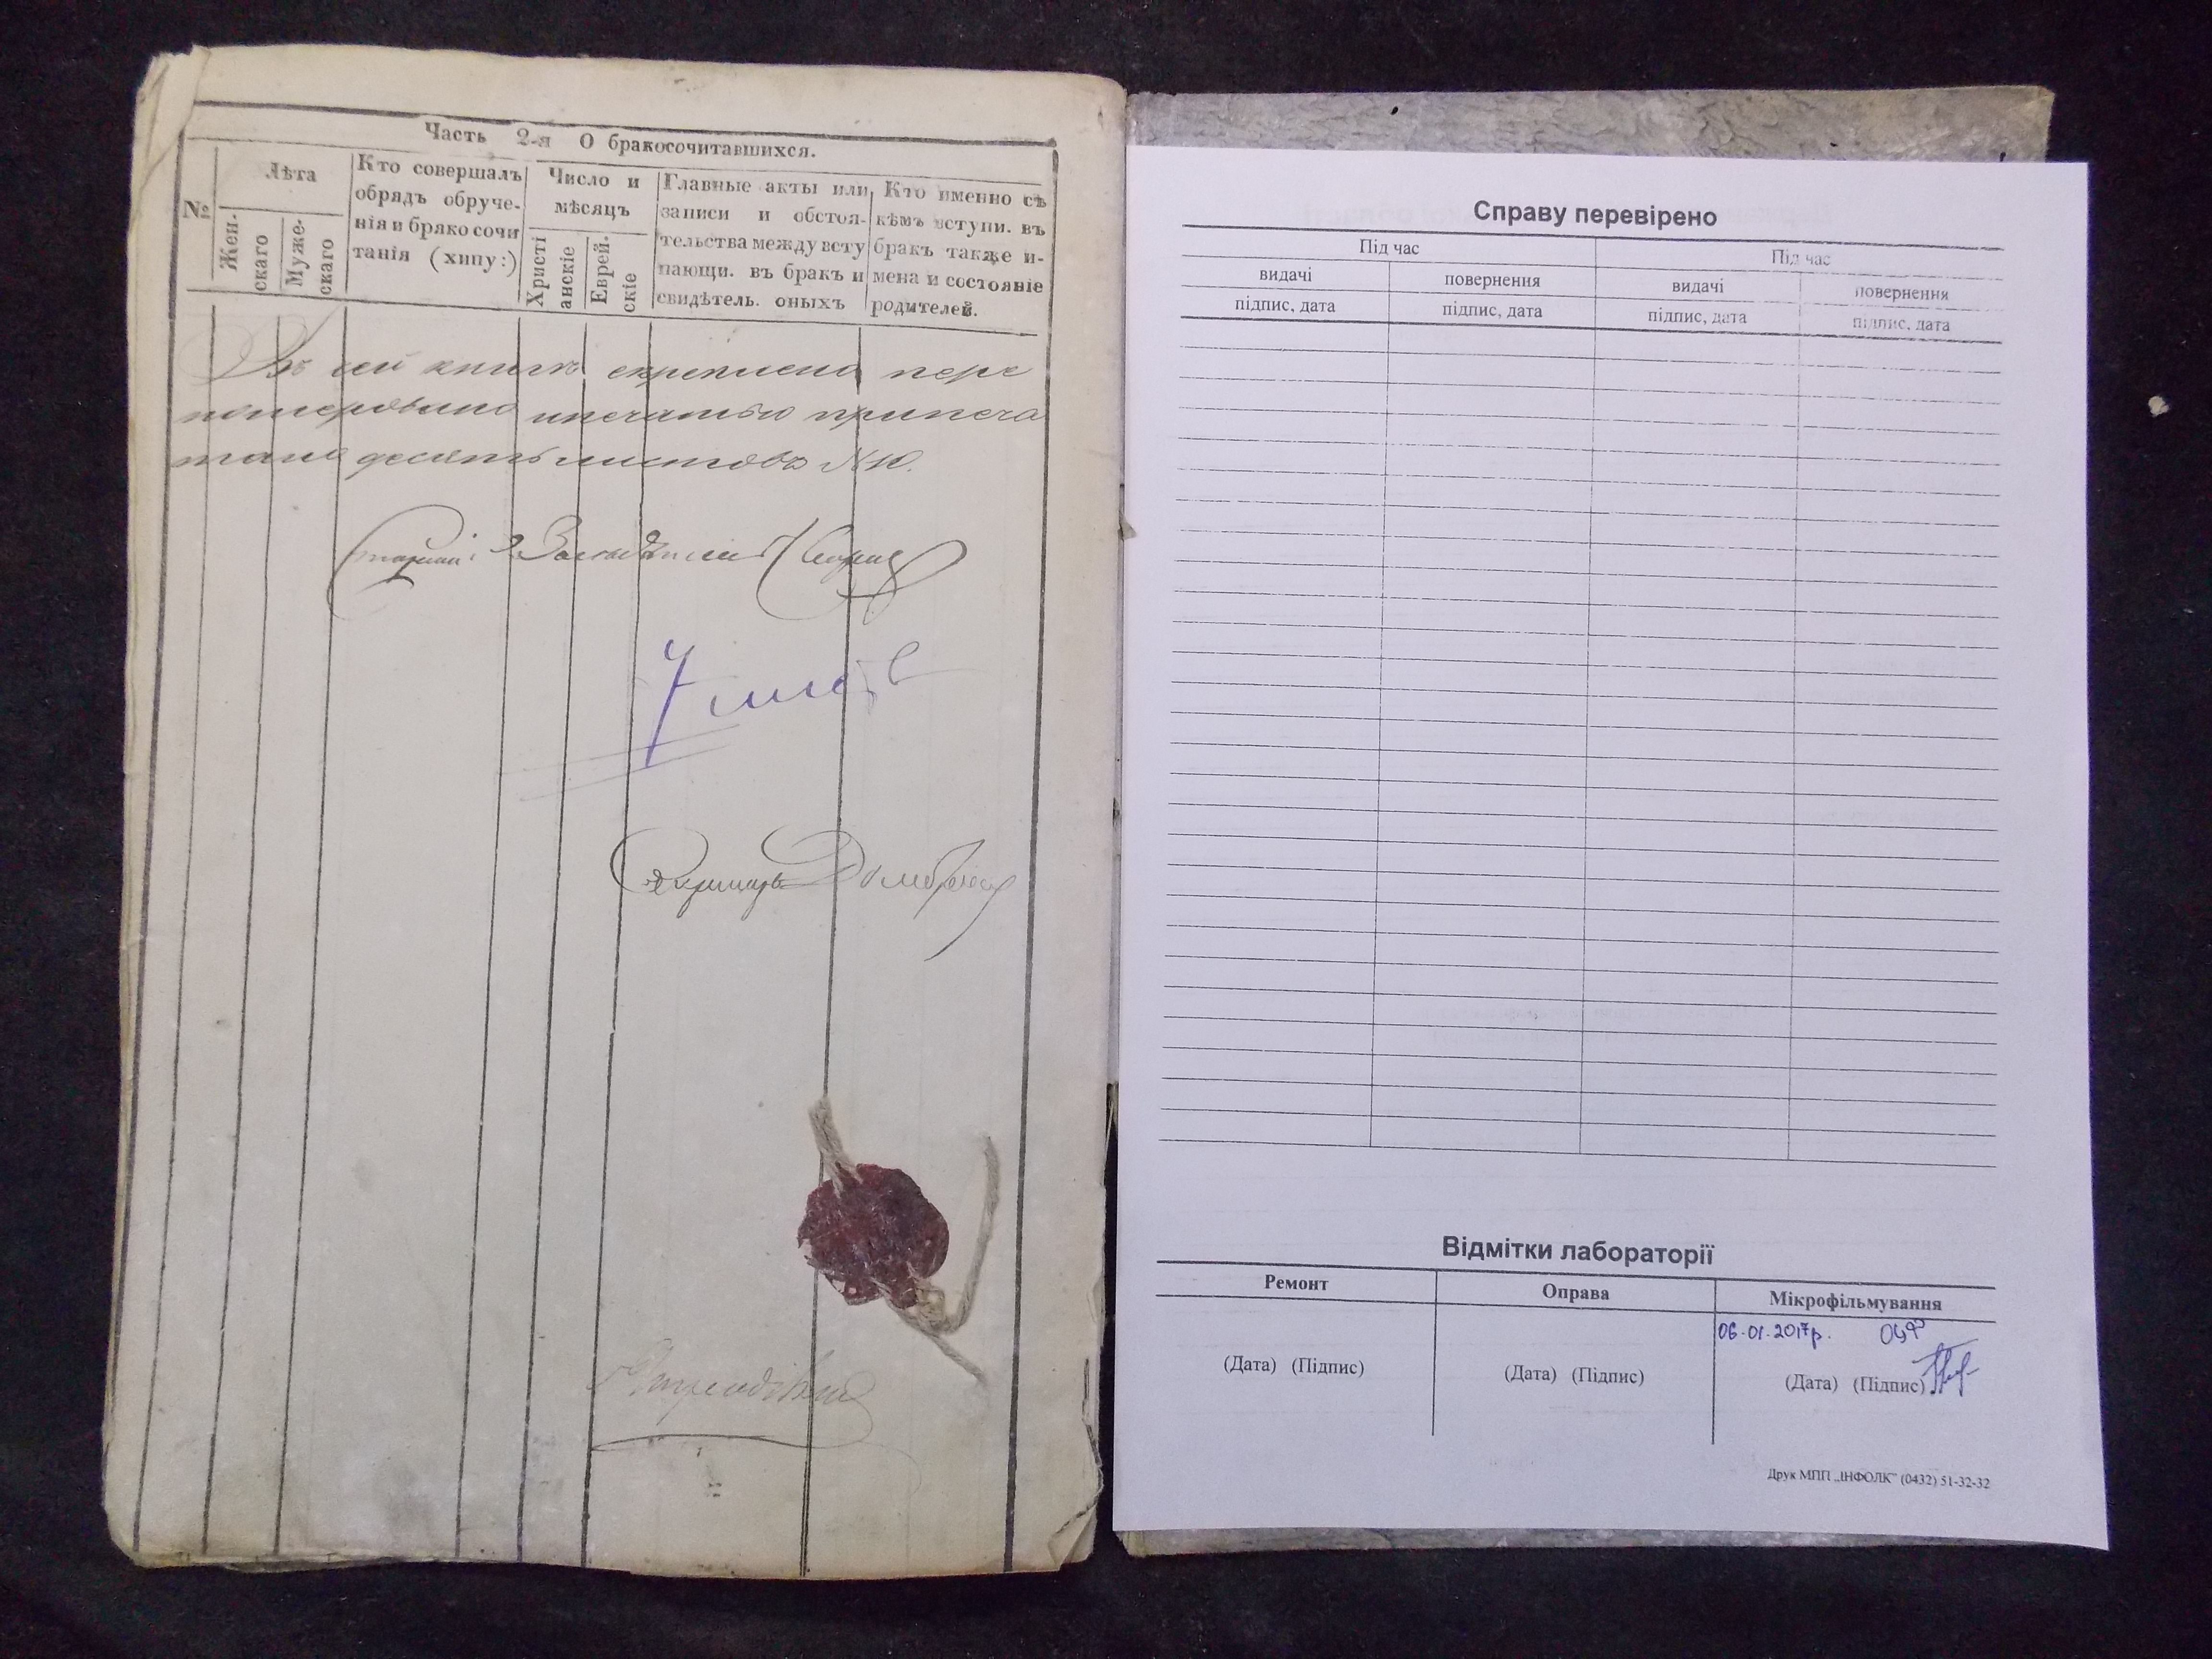 Часть 2-я О бракосочитавшихся.
№
Лѣта
Жен-
скаго
Муже-
скаго
Кто совершалъ
обрядъ обруче-
нія и бряко сочи
танія (хипу:)
Число и
мѣсяцъ
Христі
анскіе
Еврей-
скіе
Главные акты или
записи и обстоя-
тельства между всту
пающи. въ бракъ и
свидѣтель. оныхъ
Кто именно съ
кѣмъ вступи. въ
бракъ также и-
мена и состояніе
родителей.
Въ сей книгѣ скреплено пере
номеровано и печатью припеча
тано десять листовъ №10.
7
Справу перевірено
Під час
Під час
видачі
повернення
видачі
повернення
підпис, дата
підпис, дата
підпис, дата
підпис, дата
Відмітки лабораторії
Ремонт
Оправа
Мікрофільмування
06.01.2017р.
(Дата) (Підпис)
(Дата) (Підпис)
(Дата) (Підпис)
Друк МПП „ІНФОЛК" (0432) 51-32-32